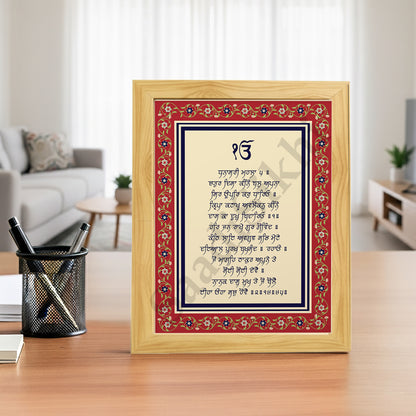 ੴ
ਧਨਾਸਰੀ ਮਹਲਾ ੫ ॥
ਚਤੁਰ ਦਿਸਾ ਕੀਨੋ ਬਲੁ ਅਪਨਾ
ਸਿਰ ਊਪਰਿ ਕਰੁ ਧਾਰਿਓ ॥
ਕ੍ਰਿਪਾ ਕਟਾਖੵ ਅਵਲੋਕਨੁ ਕੀਨੋ
ਦਾਸ ਕਾ ਦੂਖੁ ਬਿਦਾਰਿਓ ॥੧॥
ਹਰਿ ਜਨ ਰਾਖੇ ਗੁਰ ਗੋਵਿੰਦ ॥
ਕੰਠਿ ਲਾਇ ਅਵਗੁਣ ਸਭਿ ਮੇਟੇ
ਦਇਆਲ ਪੁਰਖ ਬਖਸੰਦ ॥ ਰਹਾਉ ॥
ਜੋ ਮਾਗਹਿ ਠਾਕੁਰ ਅਪੁਨੇ ਤੇ
ਸੋਈ ਸੋਈ ਦੇਵੈ ॥
ਨਾਨਕ ਦਾਸੁ ਮੁਖ ਤੇ ਜੋ ਬੋਲੈ
ਈਹਾ ਊਹਾ ਸਚੁ ਹੋਵੈ ॥੨॥੧੪॥੪੫॥